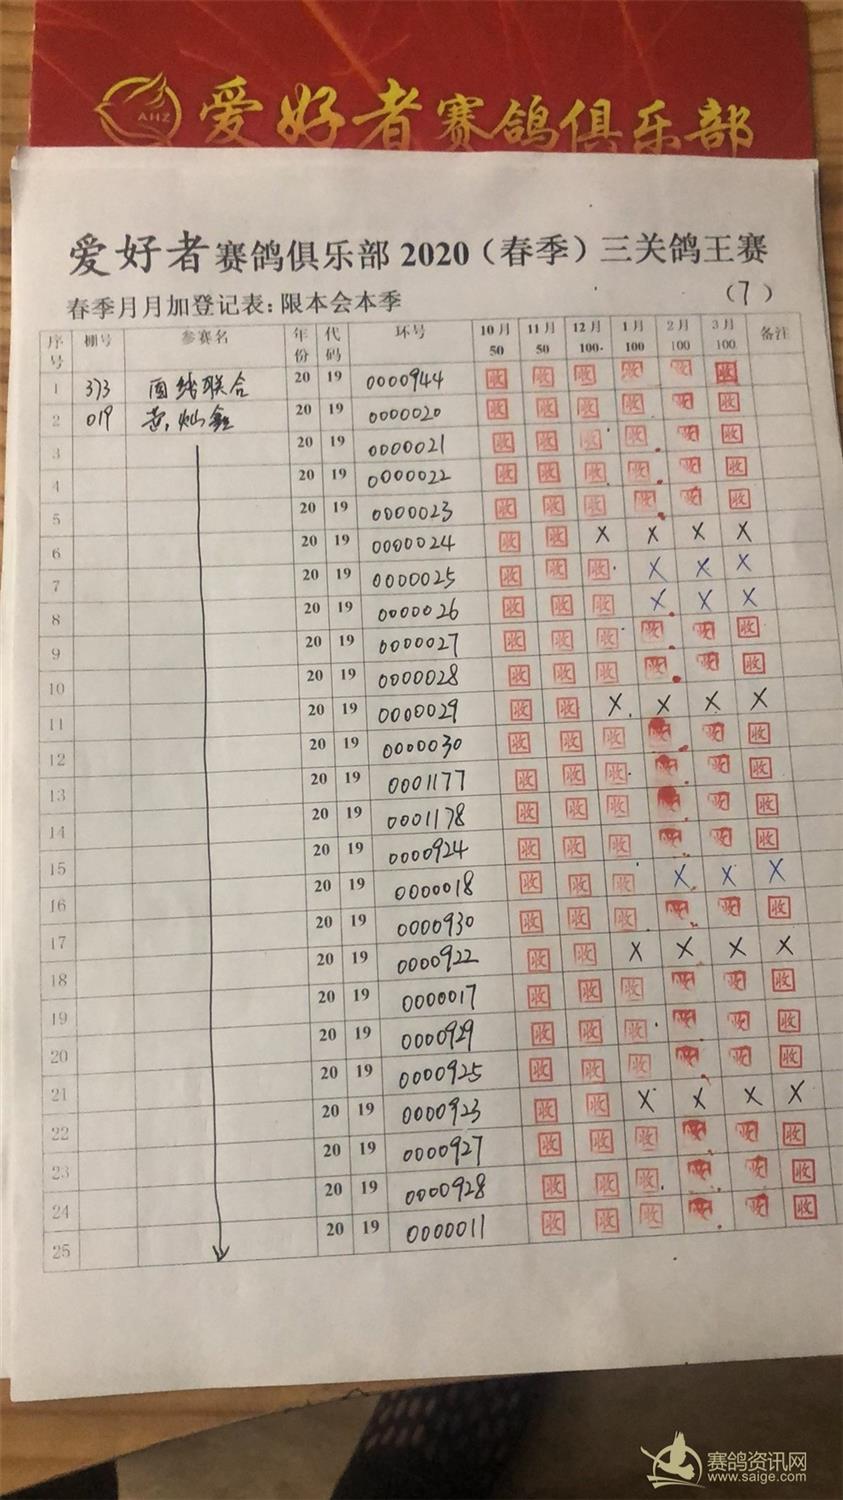 AHZ
爱好者赛鸽俱乐部
爱好者赛鸽俱乐部 2020（春季）三关鸽王赛
春季月月加登记表：限本会本季 （7）
序号 棚号 参赛名 年份 代码 环号 10月50 11月50 12月100 1月100 2月100 3月100 备注
1 373 联合 20 19 0000944 收 收 收 收 收 收
2 019 灿鑫 20 19 0000020 收 收 收 收 收 收
3 20 19 0000021 收 收 收 收 收 收
4 20 19 0000022 收 收 收 收 收 收
5 20 19 0000023 收 收 收 收 收 收
6 20 19 0000024 收 收 X X X X
7 20 19 0000025 收 收 收 X X X
8 20 19 0000026 收 收 收 X X X
9 20 19 0000027 收 收 收 收 收 收
10 20 19 0000028 收 收 收 收 收 收
11 20 19 0000029 收 收 X X X X
12 20 19 0000030 收 收 收 收 收 收
13 20 19 0001177 收 收 收 收 收 收
14 20 19 0001178 收 收 收 收 收 收
15 20 19 0000924 收 收 收 收 收 收
16 20 19 0000018 收 收 收 X X X
17 20 19 0000930 收 收 收 收 收 收
18 20 19 0000922 收 收 X X X X
19 20 19 0000017 收 收 收 收 收 收
20 20 19 0000929 收 收 收 收 收 收
21 20 19 0000925 收 收 收 收 收 收
22 20 19 0000923 收 收 X X X X
23 20 19 0000927 收 收 收 收 收 收
24 20 19 0000928 收 收 收 收 收 收
25 20 19 0000011 收 收 收 收 收 收
赛鸽资讯网
www.saige.com